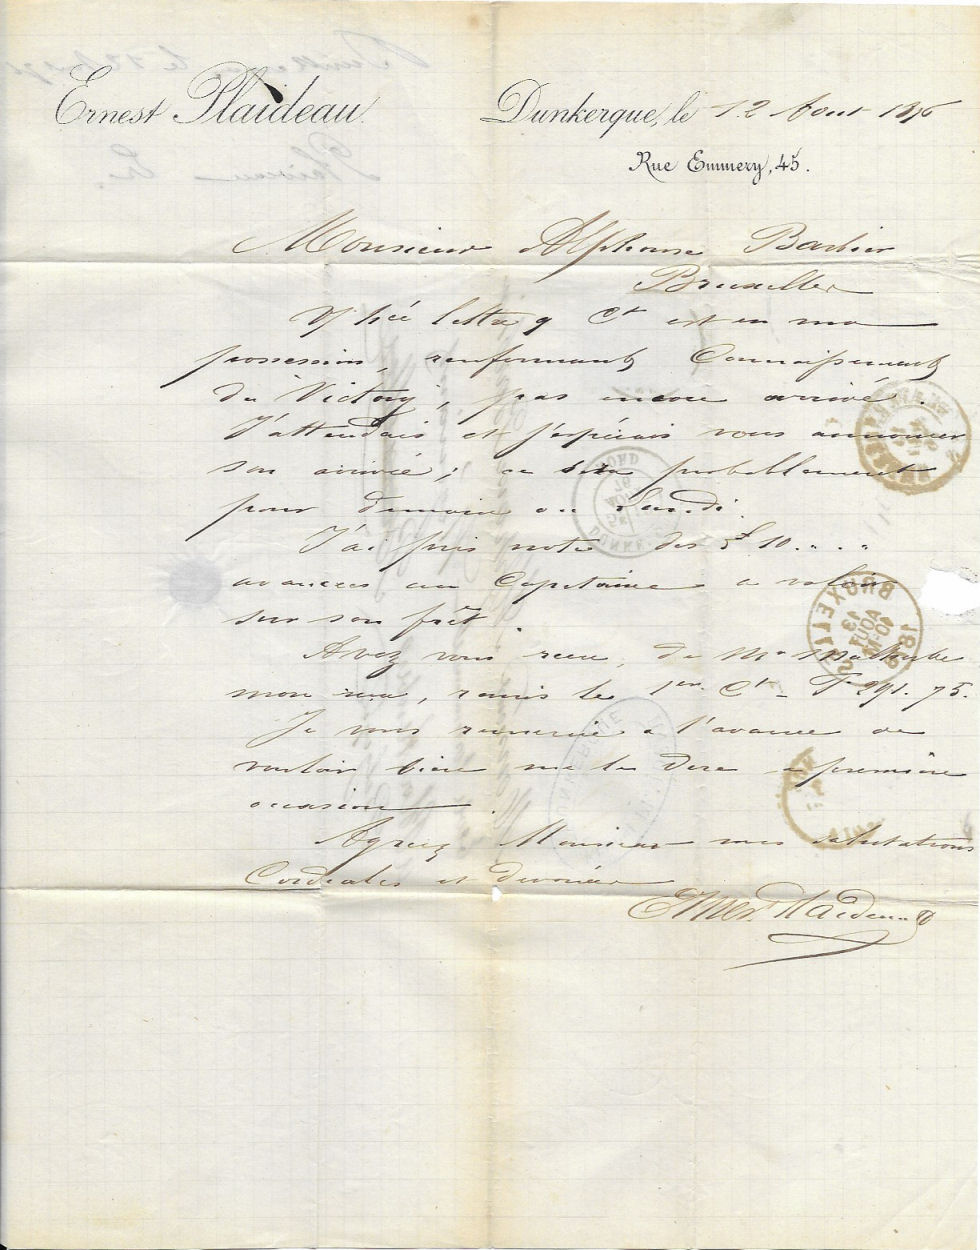 Ernest Plaideau
Dunkerque, le 12 Aout 1876
Rue Emmery, 45.
Monsieur Alphonse Barbier
Bruxelles
V/ lettre 9 Ct est en ma
possession, renfermant Connaissement
du Victory, pas encore arrivé.
J'attendais et j'espérais vous annoncer
son arrivée; ce sera probablement
pour demain ou Lundi.
J'ai pris note des £ 10....
avancées au Capitaine a valoir
sur son frêt.
Avez vous reçu, de Mr
mon, remis le 1er Ct - F 291.75.
Je vous remercie a l'avance de
vouloir bien me le dire a première
occasion.
Agréez Monsieur mes salutations
Cordiales et dévouées
Ernest Plaideau
BRUXELLES
13 AOUT
10-M
1876